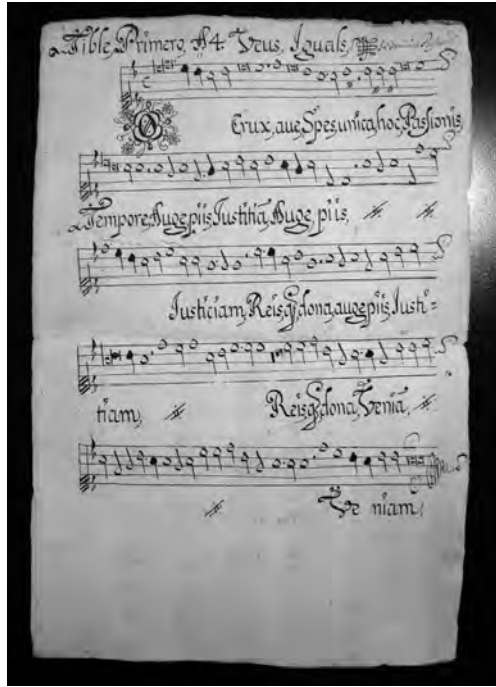 Tible Primero, A 4. Veus, Iguals,
O Crux, ave, Spes, unica, hoc, Passionis,
Tempore, Auge piis, Iustitiã, Auge piis,
Justiciam, Reis, dona, auge piis, Justi=
tiam, Reis, dona, Veniã,
Ve niam,